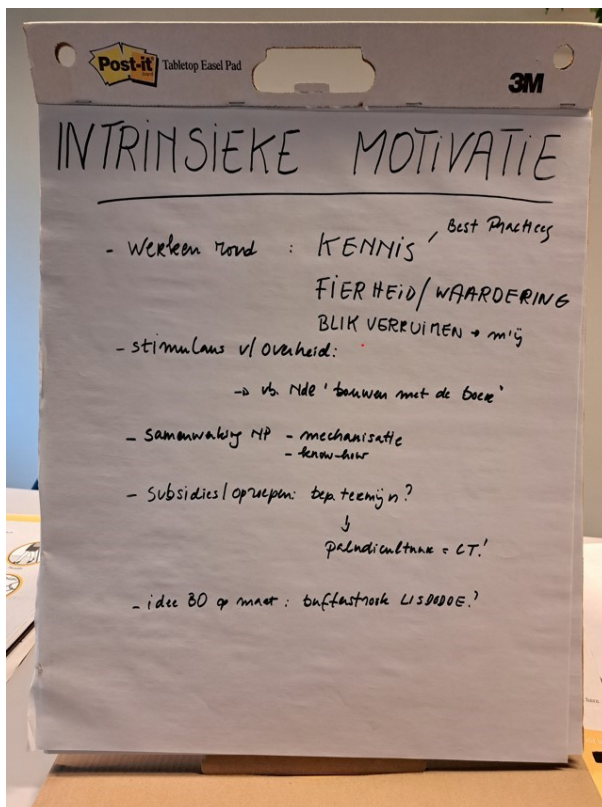 Post-it
Tabletop Easel Pad
3M
INTRINSIEKE MOTIVATIE
- Werken rond : KENNIS
Best Practices
FIERHEID/WAARDERING
BLIK VERRUIMEN → m'ij
- stimulans v/ overheid:
→ vb. Ndl 'bouwen met de boer'
- Samenwerking NP - mechanisatie
- know-how
- Subsidies/oproepen: bep. termijn?
↓
paludicultuur = LT!
- idee BO op maat : bufferstrook LISDODDE?